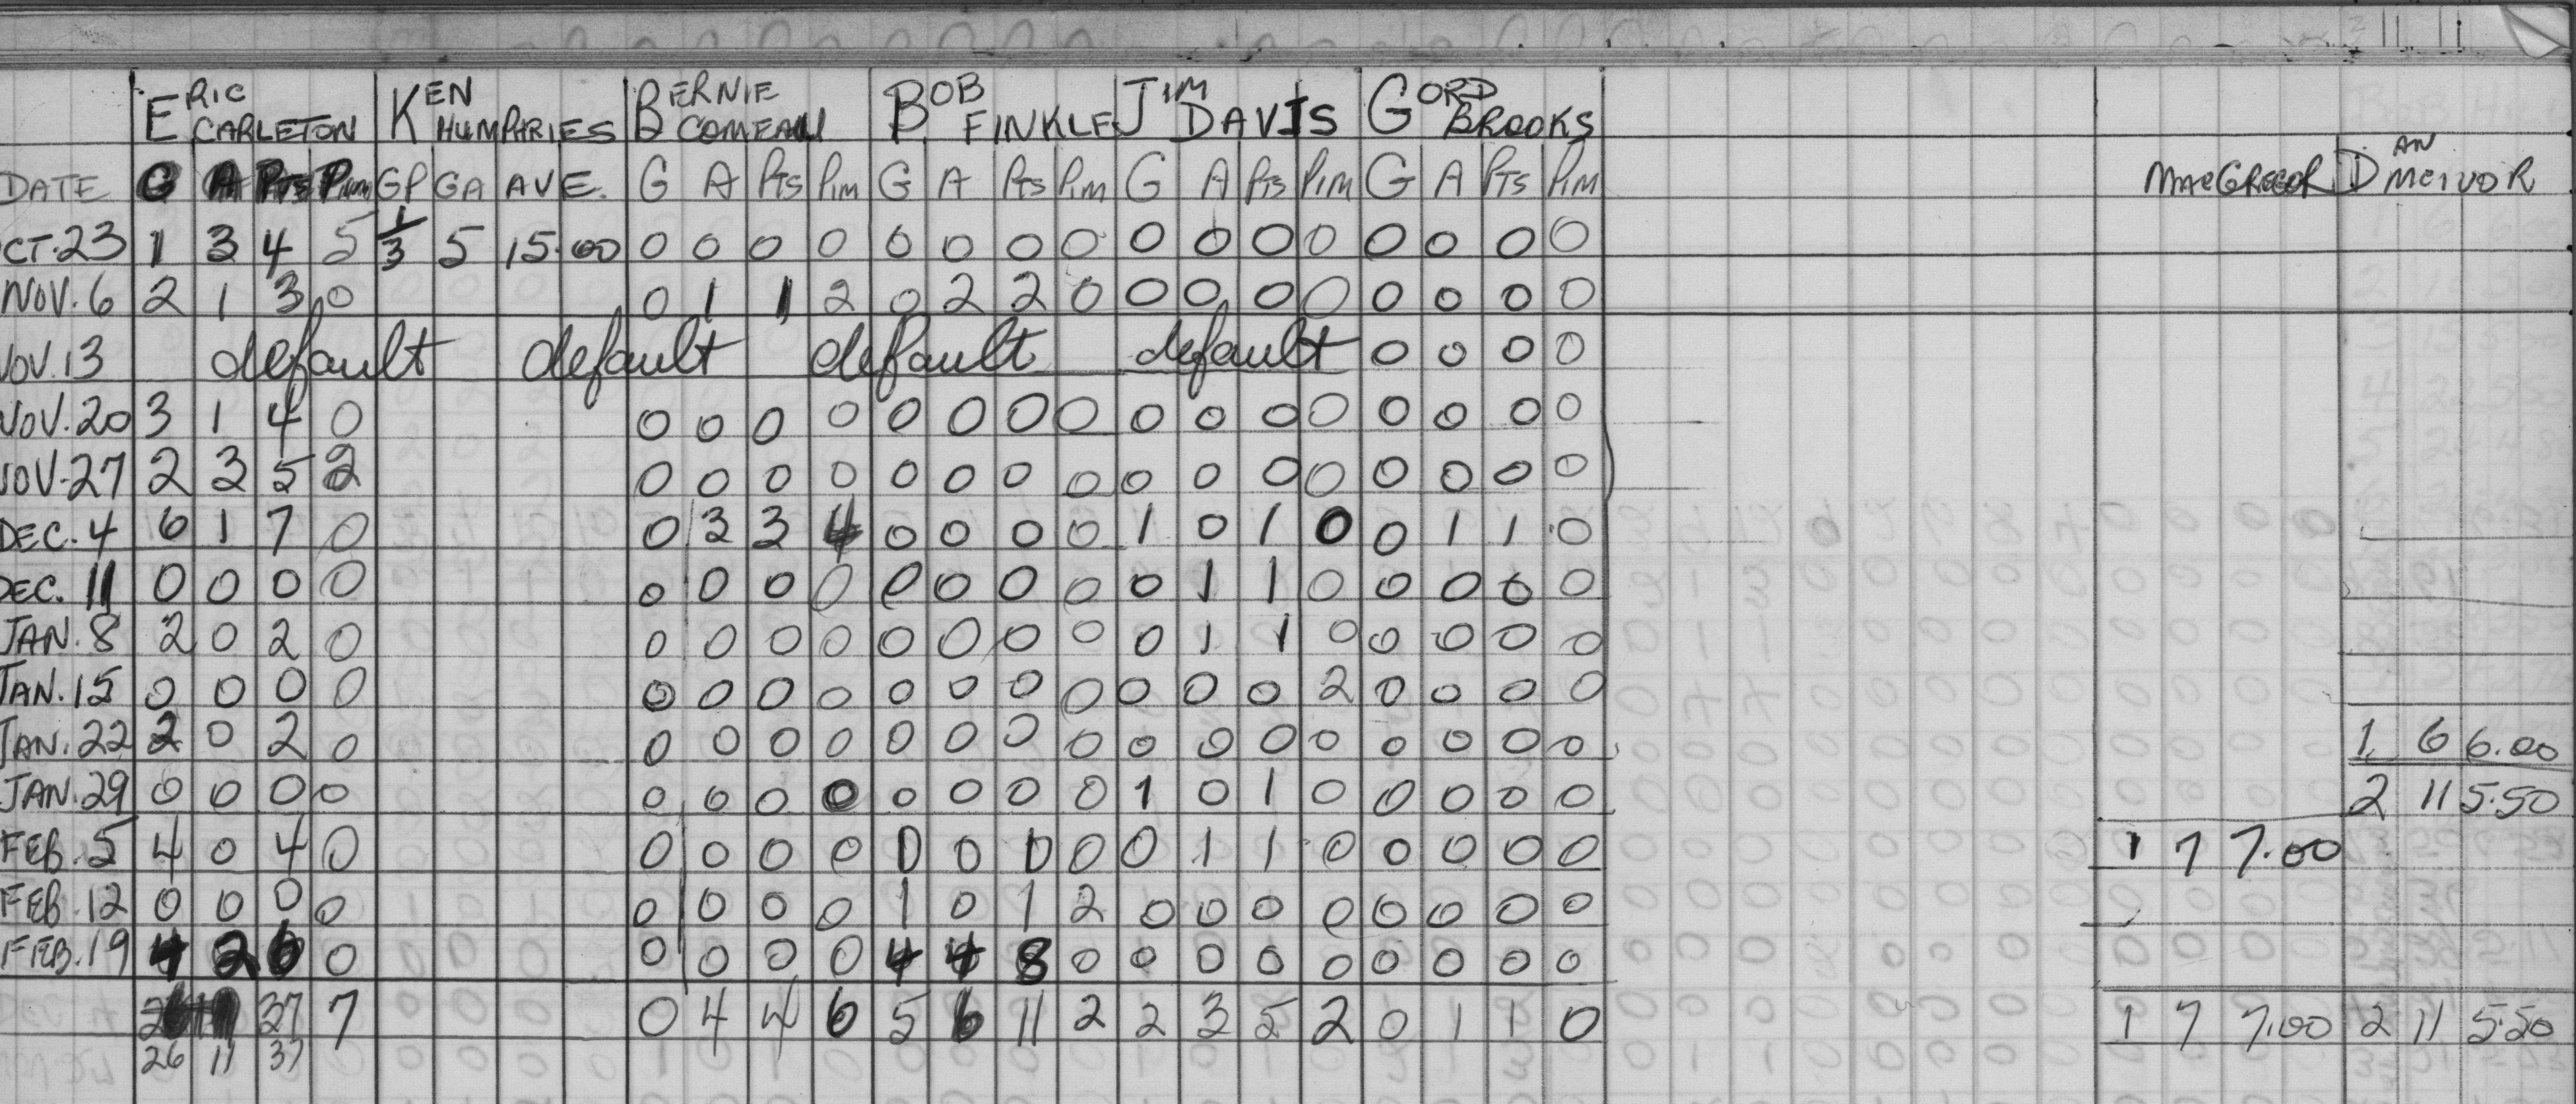 ERIC CARLETON KEN HUMPHRIES BERNIE COMEAU BOB FINKLE JIM DAVIS GORD BROOKS
DATE G A Pts Pim GP GA AVE. G A Pts Pim G A Pts Pim G A Pts Pim G A Pts Pim MacGREGOR DAN McIVOR
CT.23 1 3 4 5 1/3 5 15.00 0 0 0 0 0 0 0 0 0 0 0 0 0 0 0 0
NOV.6 2 1 3 0 0 1 1 2 0 2 2 0 0 0 0 0 0 0 0 0
NOV.13 default default default default 0 0 0 0
NOV.20 3 1 4 0 0 0 0 0 0 0 0 0 0 0 0 0 0 0 0 0
NOV-27 2 3 5 2 0 0 0 0 0 0 0 0 0 0 0 0 0 0 0 0
DEC.4 6 1 7 0 0 3 3 4 0 0 0 0 1 0 1 0 0 1 1 0
DEC.11 0 0 0 0 0 0 0 0 0 0 0 0 0 1 1 0 0 0 0 0
JAN.8 2 0 2 0 0 0 0 0 0 0 0 0 0 1 1 0 0 0 0 0
JAN.15 0 0 0 0 0 0 0 0 0 0 0 0 0 0 0 2 0 0 0 0
JAN.22 2 0 2 0 0 0 0 0 0 0 0 0 0 0 0 0 0 0 0 0 1 6 6.00
JAN.29 0 0 0 0 0 0 0 0 0 0 0 0 1 0 1 0 0 0 0 0 2 11 5.50
FEB.5 4 0 4 0 0 0 0 0 0 0 0 0 0 1 1 0 0 0 0 0 1 7 7.00
FEB.12 0 0 0 0 0 0 0 0 1 0 1 2 0 0 0 0 0 0 0 0
FEB.19 4 2 6 0 0 0 0 0 4 4 8 0 0 0 0 0 0 0 0 0
37 7 0 4 4 6 5 6 11 2 2 3 5 2 0 1 1 0 1 7 7.00 2 11 5.50
26 11 37